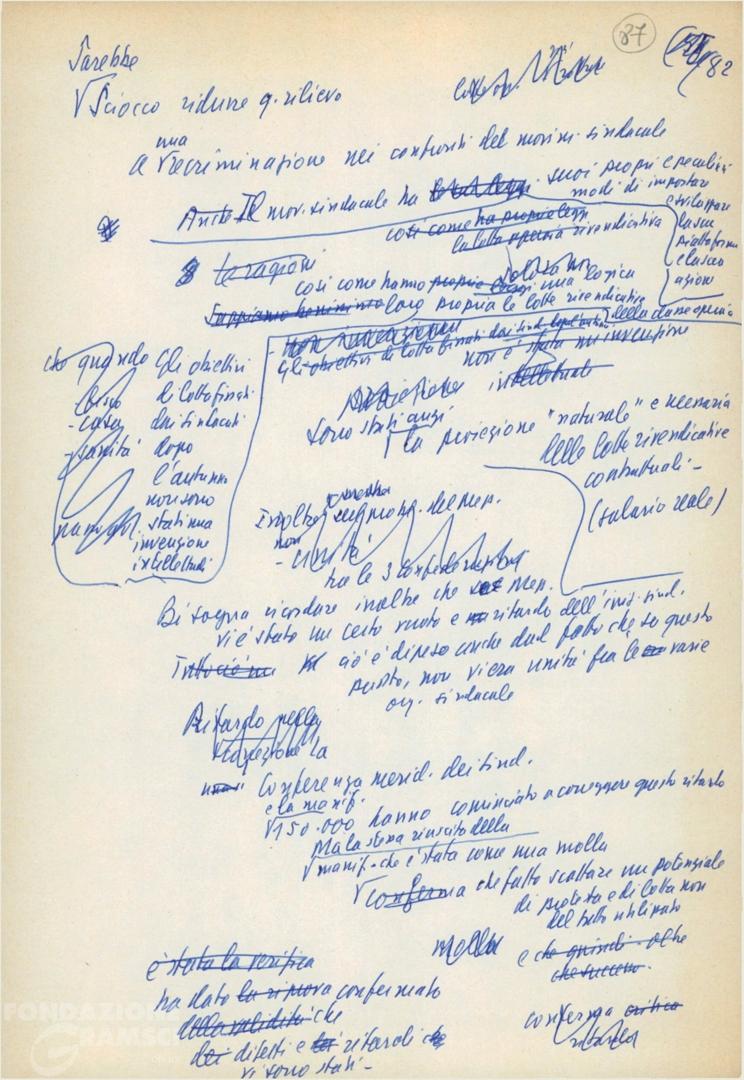 87
82
Sarebbe
√ Sciocco ridurre q. rilievo
una
a √ recriminazione nei confronti del movim. sindacale
Anche Il mov. sindacale ha suoi propri e peculiari
modi di impostare
e sviluppare
la sua
piattaforma
e la sua
azione
così come ha proprie leggi
la lotta operaia rivendicativa
le ragioni
così come hanno proprie una logica
loro propria le lotte rivendicative
della classe operaia
Gli obiettivi di lotta fissati dai sind.
non è stata un'invenzione
intellettuale
sono stati anzi
la proiezione "naturale" e necessaria
delle lotte rivendicative
contrattuali -
(salario reale)
che quando Gli obiettivi
di lotta fissati
- casa dai sindacati
- sanità dopo
l'autunno
non sono
stati una
invenzione
intellettuali
Inoltre
non
- unità
tra le 3 confederazioni
Bisogna ricordare inoltre che nel Men.
vi è stato un certo vuoto e ritardo dell'iniz. sind.
ciò è dipeso anche dal fatto che su questo
punto, non vi era unità fra le varie
org. sindacale
Ritardo nella
Conferenza merid. dei sind.
e la manif.
√ 150.000 hanno cominciato a correggere questo ritardo
Ma la stessa riuscita della
√ manif. che è stata come una molla
√ conferma che fatto scattare un potenziale
di protesta e di lotta non
del tutto utilizzato
molla
e che quindi oltre
che successo.
è stata la verifica
ha dato la riprova confermato
della validità che
dei difetti e dei ritardi che
vi sono stati -
conferma critica
ritardo
FONDAZIONE
GRAMSCI